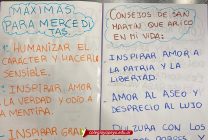 MÁXIMAS
PARA MERCEDI
TAS.
1: HUMANIZAR EL
CARACTER Y HACERLO
SENSIBLE.
2: INSPIRAR AMOR
LA VERDAD Y ODIO A
LA MENTIRA.
INSPIRAR GRAN
CONSEJOS DE SAN
MARTIN QUE APLICO
EN MI VIDA:
INSPIRAR AMOR A
LA PATRIA Y LA
LIBERTAD.
- AMOR AL ASEO Y
DESPRECIO AL LUJO
DULZURA CON LOS